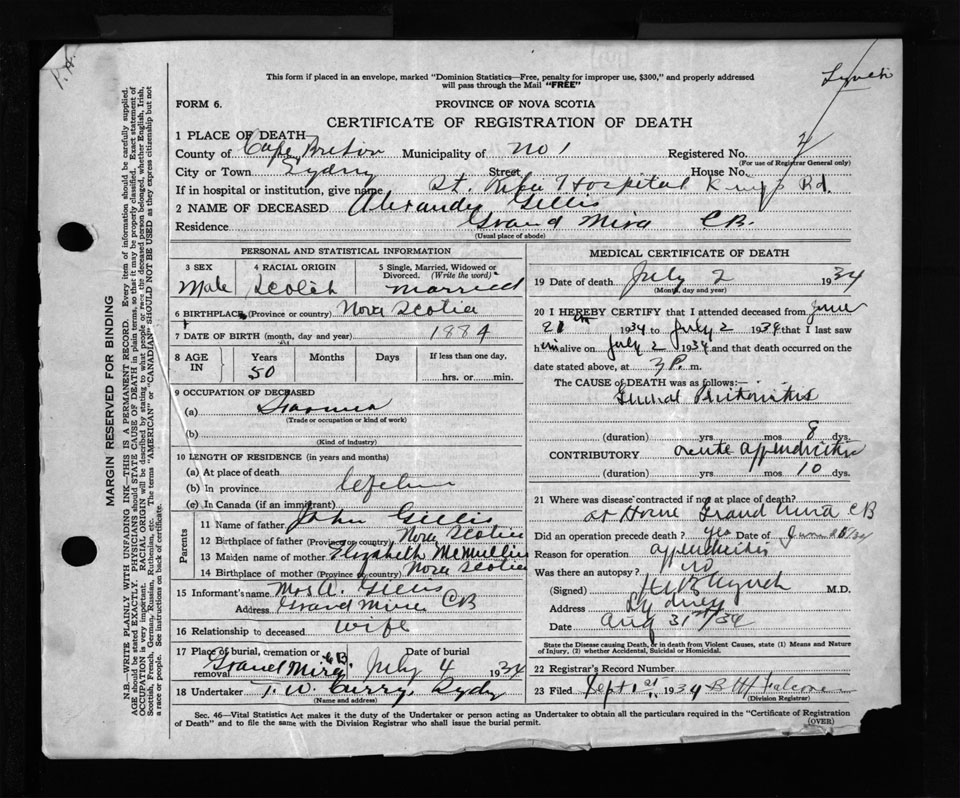 P.H.
Lynch
This form if placed in an envelope, marked "Dominion Statistics—Free, penalty for improper use, $300," and properly addressed
will pass through the Mail "FREE"
FORM 6.
PROVINCE OF NOVA SCOTIA
CERTIFICATE OF REGISTRATION OF DEATH
1 PLACE OF DEATH
County of Cape Breton Municipality of No 1 Registered No.
(For use of Registrar General only)
City or Town Sydney Street House No.
If in hospital or institution, give name St. Rita Hospital Kings Rd.
2 NAME OF DECEASED Alexander Gillis
Residence Grand Mira CB.
(Usual place of abode)
PERSONAL AND STATISTICAL INFORMATION
3 SEX 4 RACIAL ORIGIN 5 Single, Married, Widowed or Divorced. (Write the word)
Male Scotch Married
6 BIRTHPLACE (Province or country) Nova Scotia
7 DATE OF BIRTH (month, day and year) 1884
8 AGE IN Years Months Days If less than one day,
50 hrs. or min.
9 OCCUPATION OF DECEASED
(a) Farmer
(Trade or occupation or kind of work)
(b)
(Kind of industry)
10 LENGTH OF RESIDENCE (in years and months)
(a) At place of death
(b) In province
(c) In Canada (if an immigrant)
Parents
11 Name of father John Gillis
12 Birthplace of father (Province or country) Nova Scotia
13 Maiden name of mother Elizabeth McMullin
14 Birthplace of mother (Province or country) Nova Scotia
15 Informant's name Mrs A. Gillis
Address Grand Mira CB
16 Relationship to deceased wife
17 Place of burial, cremation or removal Date of burial
Grand Mira CB July 4 1934
18 Undertaker T. W. Curry, Sydney
(Name and address)
MEDICAL CERTIFICATE OF DEATH
19 Date of death July 2 1934
(Month, day and year)
20 I HEREBY CERTIFY that I attended deceased from June
1934 to July 2 1934 that I last saw
him alive on July 2 1934 and that death occurred on the
date stated above, at 3 P. m.
The CAUSE OF DEATH was as follows:—
General Peritonitis
(duration) yrs mos 8 dys.
CONTRIBUTORY acute appendicitis
(duration) yrs mos 10 dys.
21 Where was disease contracted if not at place of death?
at Home Grand Mira CB
Did an operation precede death? yes Date of June
Reason for operation appendicitis
Was there an autopsy? no
(Signed) Lynch M.D.
Address Sydney
Date Aug 31st/34
State the Disease causing Death, or in death from Violent Causes, state (1) Means and Nature of Injury, (2) whether Accidental, Suicidal or Homicidal.
22 Registrar's Record Number
23 Filed Sept 1934
(Division Registrar)
Sec. 46—Vital Statistics Act makes it the duty of the Undertaker or person acting as Undertaker to obtain all the particulars required in the "Certificate of Registration
of Death" and to file the same with the Division Registrar who shall issue the burial permit. (OVER)
MARGIN RESERVED FOR BINDING
N.B.—WRITE PLAINLY WITH UNFADING INK—THIS IS A PERMANENT RECORD. Every item of information should be carefully supplied.
AGE should be stated EXACTLY. PHYSICIANS should STATE CAUSE OF DEATH in plain terms, so that it may be properly classified. Exact statement of
OCCUPATION is very important. RACIAL ORIGIN will be described by stating to what people or race the deceased person belonged, whether English, Irish,
Scottish, French, German, Russian, Ruthenian, etc. The terms "AMERICAN" or "CANADIAN" SHOULD NOT BE USED as they express citizenship but not
a race or people. See instructions on back of certificate.